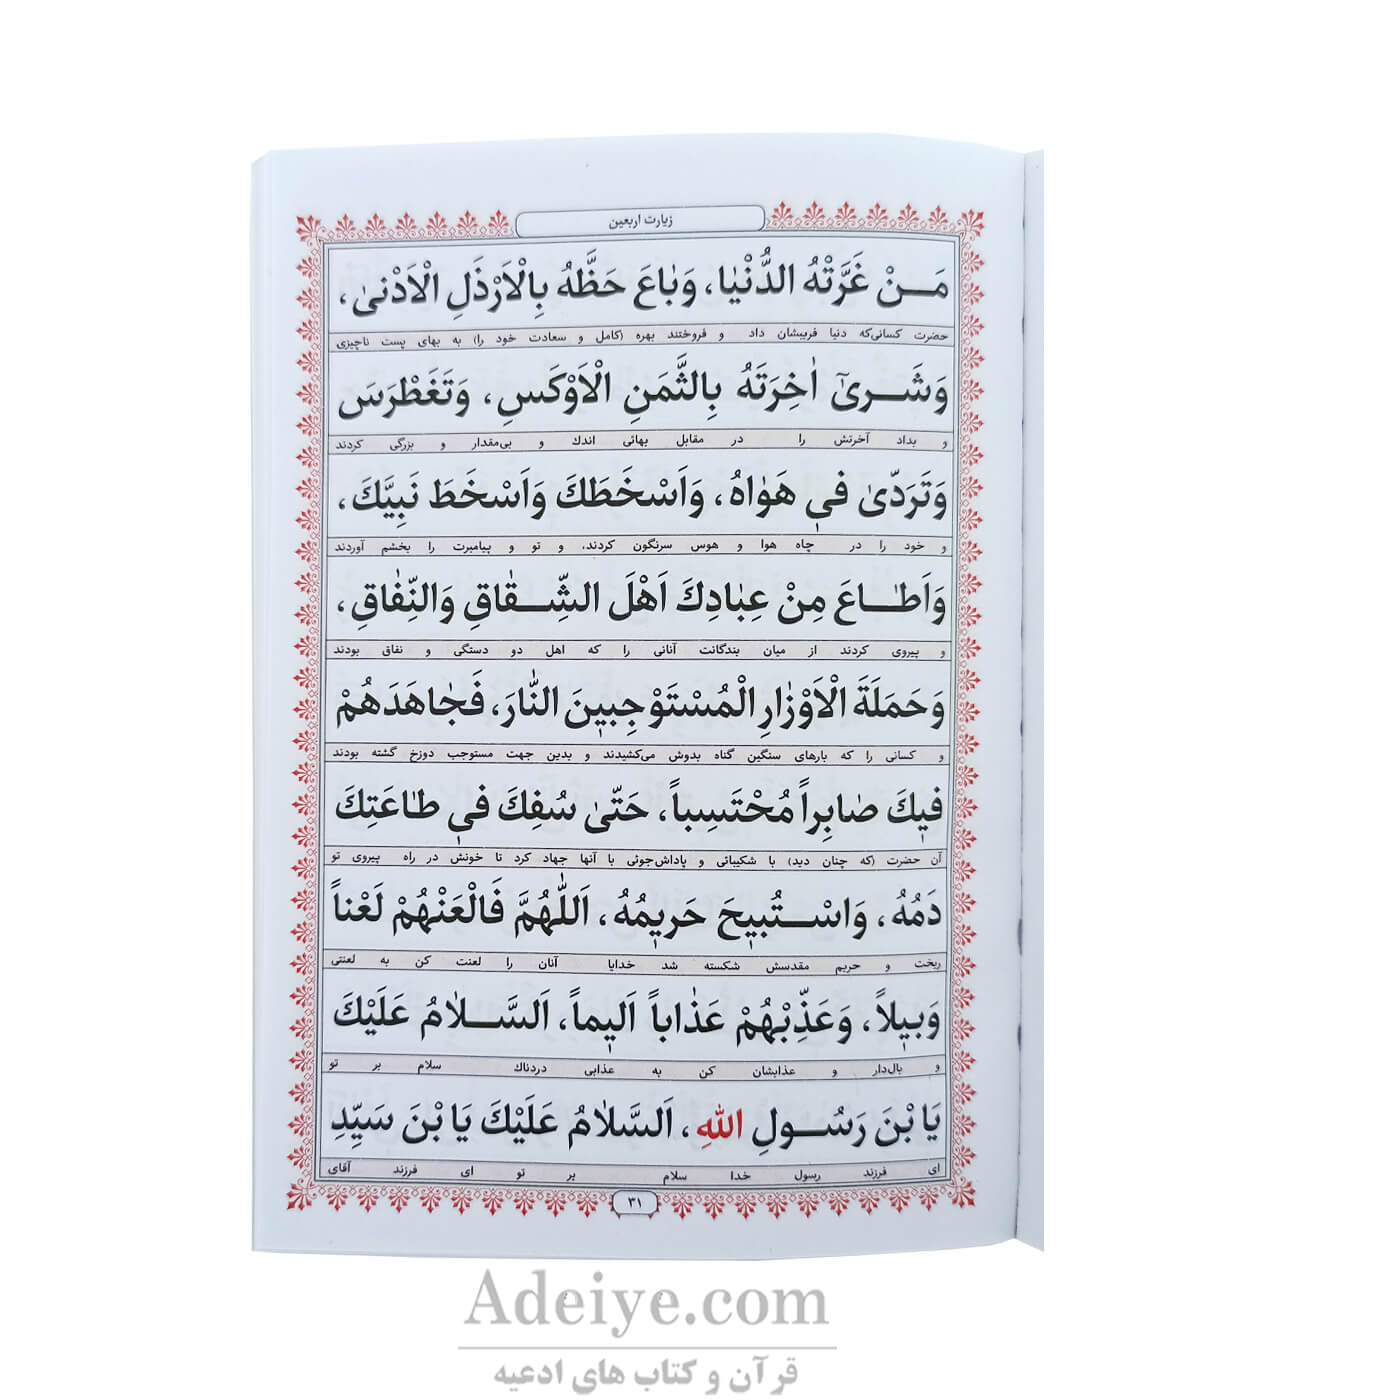 زیارت اربعین
مَـنْ غَرَّتْهُ الدُّنْیٰا، وَبٰاعَ حَظَّهُ بِالْاَرْذَلِ الْاَدْنیٰ،
حضرت کسانی‌که دنیا فریبشان داد و فروختند بهره (کامل و سعادت خود را) به بهای پست ناچیزی
وَشَـریٰٓ اٰخِرَتَهُ بِالثَّمَنِ الْاَوْکَسِ، وَتَغَطْرَسَ
و بداد آخرتش را در مقابل بهائی اندك و بی‌مقدار و بزرگی کردند
وَتَرَدّیٰ فی هَوٰاهُ، وَاَسْخَطَكَ وَاَسْخَطَ نَبِیَّكَ،
و خود را در چاه هوا و هوس سرنگون کردند، و تو و پیامبرت را بخشم آوردند
وَاَطـٰاعَ مِنْ عِبٰادِكَ اَهْلَ الشِّـقٰاقِ وَالنِّفٰاقِ،
و پیروی کردند از میان بندگانت آنانی را که اهل دو دستگی و نفاق بودند
وَحَمَلَةَ الْاَوْزٰارِ الْمُسْتَوْجِبینَ النّٰارَ، فَجٰاهَدَهُمْ
و کسانی را که بارهای سنگین گناه بدوش می‌کشیدند و بدین جهت مستوجب دوزخ گشته بودند
فیكَ صٰابِراً مُحْتَسِباً، حَتّیٰ سُفِكَ فی طٰاعَتِكَ
آن حضرت (که چنان دید) با شکیبائی و پاداش‌جوئی با آنها جهاد کرد تا خونش در راه پیروی تو
دَمُهُ، وَاسْـتُبیحَ حَریمُهُ، اَللّٰهُمَّ فَالْعَنْهُمْ لَعْناً
ریخت و حریم مقدسش شکسته شد خدایا آنان را لعنت کن به لعنتی
وَبیلاً، وَعَذِّبْهُمْ عَذٰاباً اَلیماً، اَلسَّـلاٰمُ عَلَیْكَ
و بال‌دار و عذابشان کن به عذابی دردناك سلام بر تو
یَا بْنَ رَسُـولِ اللهِ، اَلسَّلاٰمُ عَلَیْكَ یَا بْنَ سَیِّدِ
ای فرزند رسول خدا سلام بر تو ای فرزند آقای
۳۱
Adeiye.com
قرآن و کتاب های ادعیه